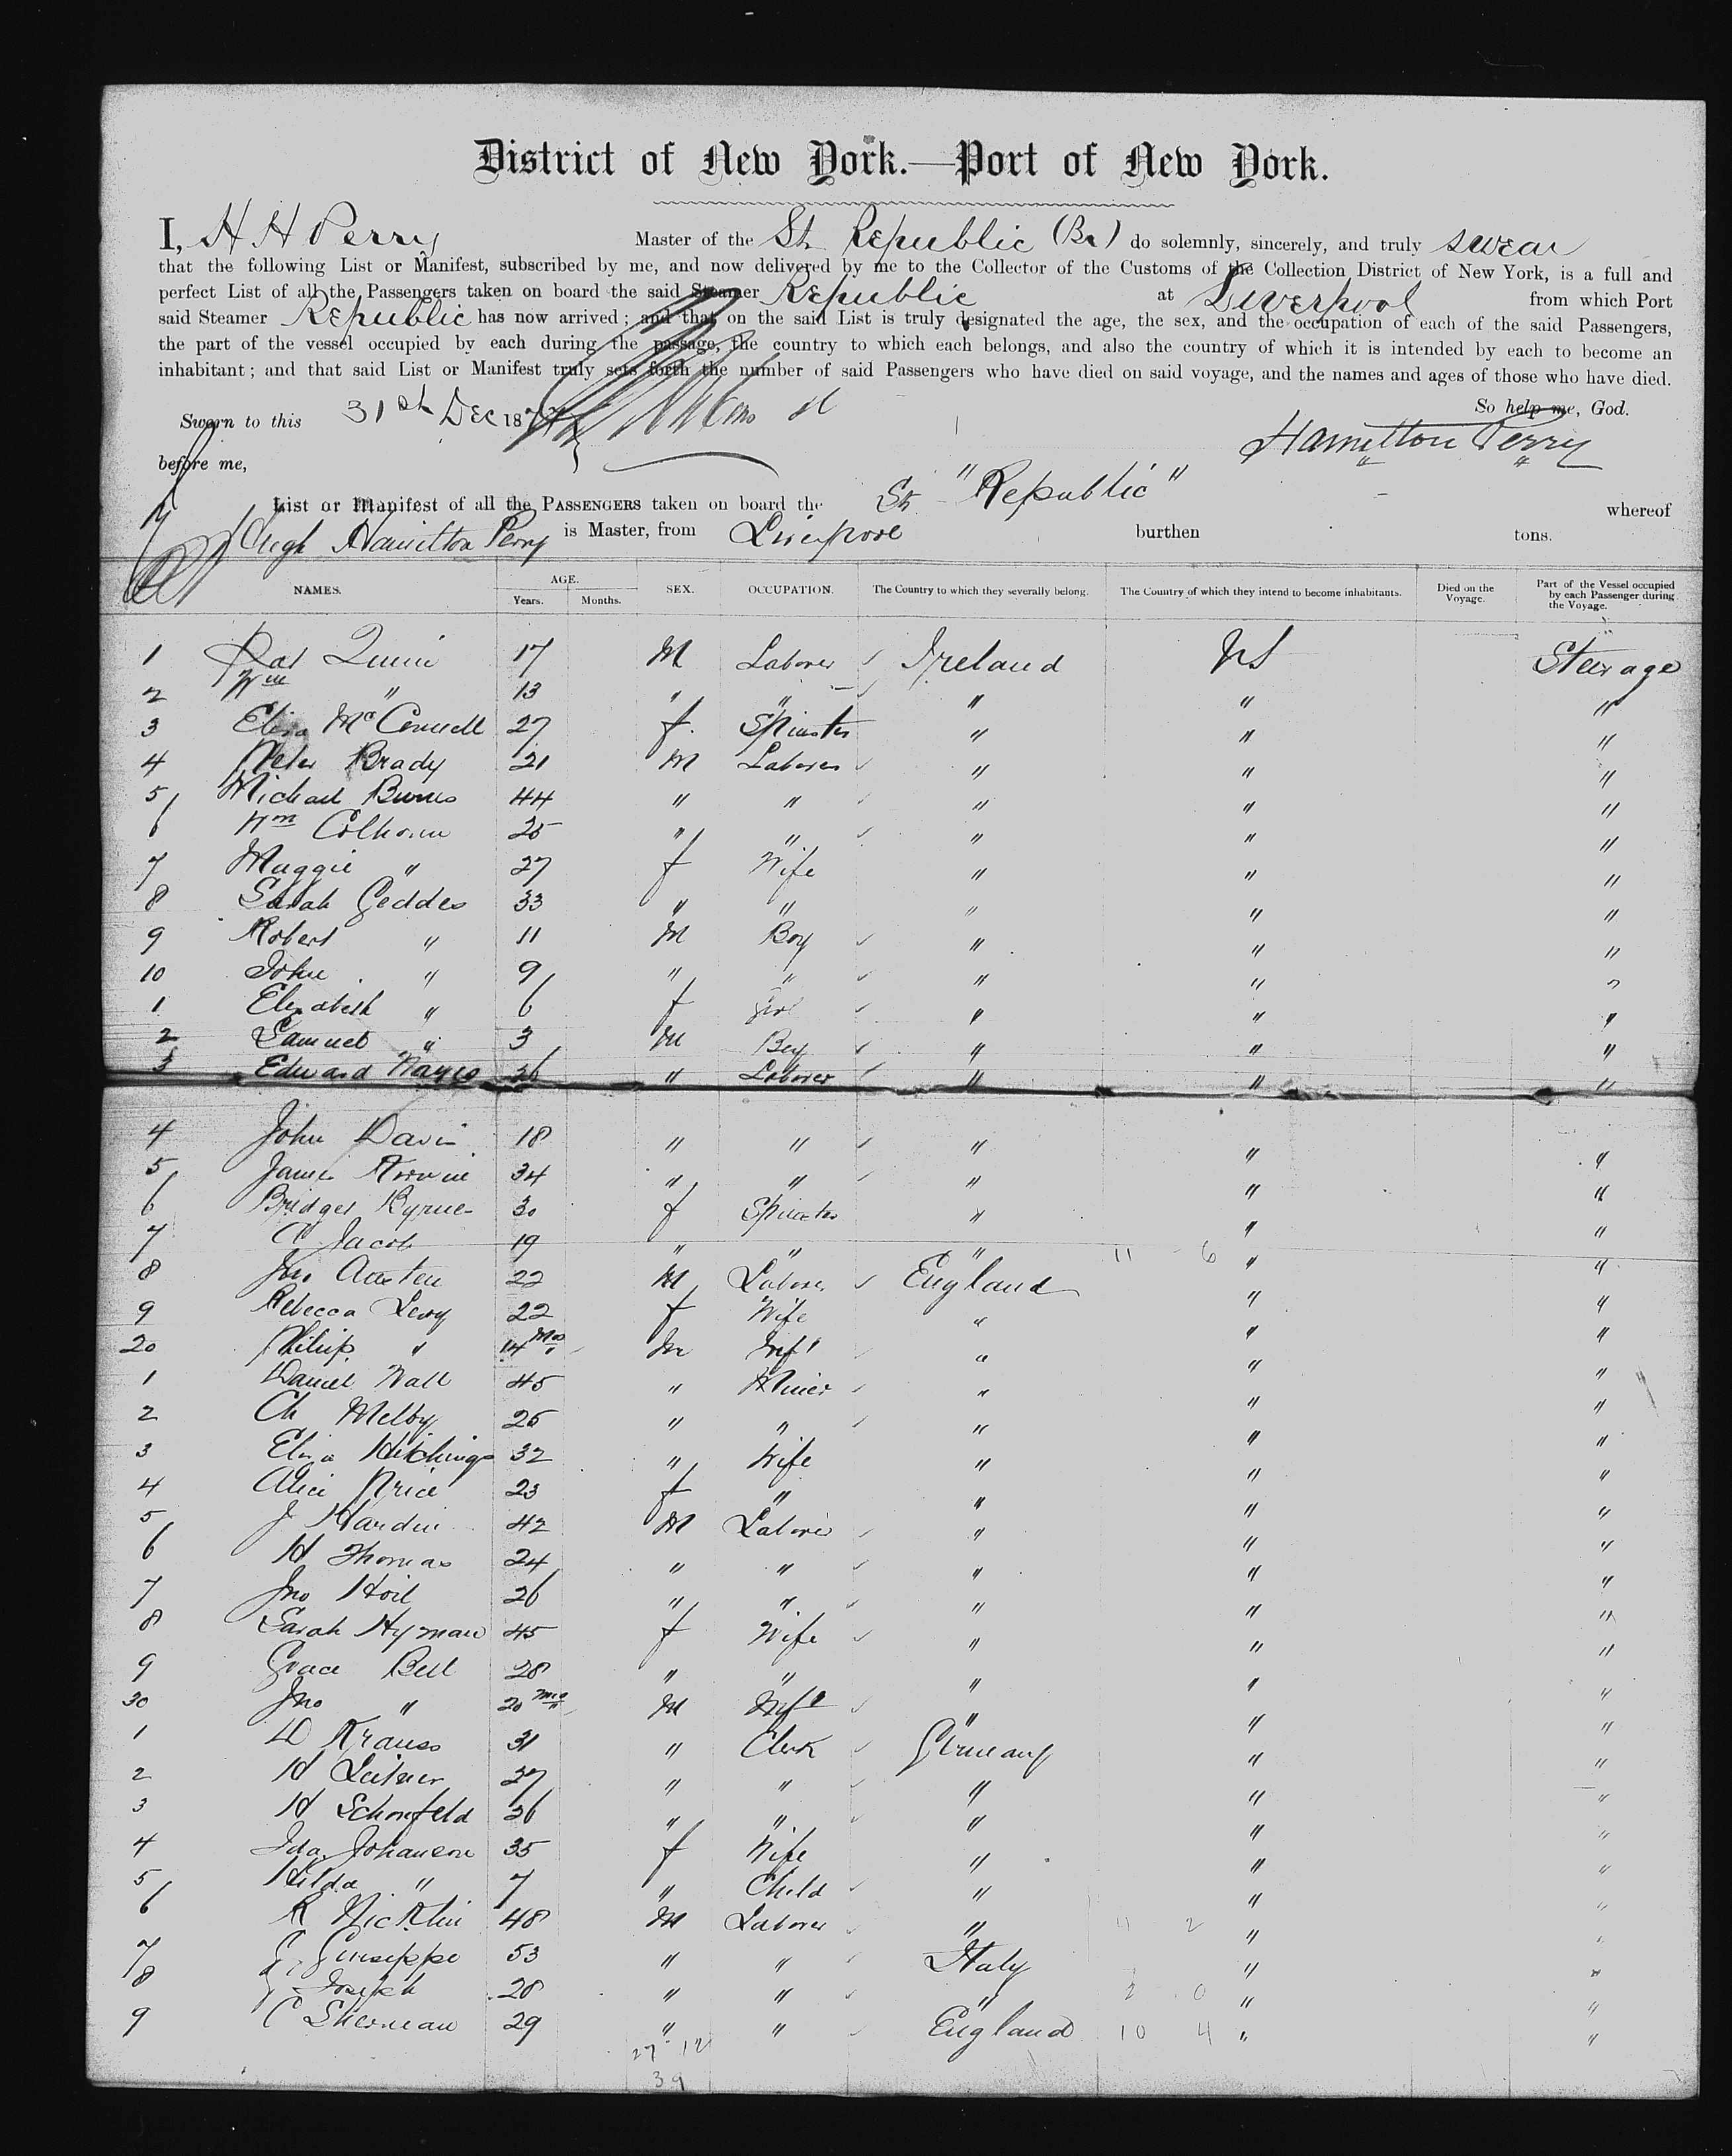 District of New York.—Port of New York.
I, H H Perry Master of the Str Republic (Br) do solemnly, sincerely, and truly swear
that the following List or Manifest, subscribed by me, and now delivered by me to the Collector of the Customs of the Collection District of New York, is a full and
perfect List of all the Passengers taken on board the said Steamer Republic at Liverpool from which Port
said Steamer Republic has now arrived; and that on the said List is truly designated the age, the sex, and the occupation of each of the said Passengers,
the part of the vessel occupied by each during the passage, the country to which each belongs, and also the country of which it is intended by each to become an
inhabitant; and that said List or Manifest truly sets forth the number of said Passengers who have died on said voyage, and the names and ages of those who have died.
So help me, God.
Sworn to this 31st Dec 187
Hamilton Perry
before me,
List or Manifest of all the PASSENGERS taken on board the Str "Republic" whereof
Hugh Hamilton Perry is Master, from Liverpool burthen tons.
NAMES. AGE. Years. Months. SEX. OCCUPATION. The Country to which they severally belong. The Country of which they intend to become inhabitants. Died on the Voyage. Part of the Vessel occupied by each Passenger during the Voyage.
1 Pat Quinn 17 M Laborer Ireland US Steerage
2 Wm " 13 " " " " "
3 Eliza McConnell 27 f. Spinster " " "
4 Peter Brady 21 M Laborer " " "
5 Michael Burns 44 " " " " "
6 Wm Colhoun 25 " " " " "
7 Maggie " 27 f Wife " " "
8 Sarah Geddes 33 " " " " "
9 Robert " 11 M Boy " " "
10 John " 9 " " " " "
1 Elizabeth " 6 f Girl " " "
2 Samuel " 3 M Boy " " "
3 Edward 26 " Laborer " " "
4 John Davis 18 " " " " "
5 James 34 " " " " "
6 Bridget Byrne 30 f Spinster " " "
7 C Jacob 19 " " " 11 6 " "
8 Jno Austen 22 M Laborer England " "
9 Rebecca Levy 22 f Wife " " "
20 Philip " 14 Mos M Inft " " "
1 Daniel Wall 45 " Miner " " "
2 Ch Melby 25 " " " " "
3 Eliza Hitchings 32 " Wife " " "
4 Alice Price 23 f " " " "
5 J Hardin 42 M Laborer " " "
6 H Thomas 24 " " " " "
7 Jno Hoil 26 " " " " "
8 Sarah Hyman 45 f Wife " " "
9 Grace Bell 28 " " " " "
30 Jno " 20 mos M Inft " " "
1 D Krauss 31 " Clerk Germany " "
2 H Leitner 27 " " " " "
3 H Schonfeld 26 " " " " "
4 Ida Johanson 35 f Wife " " "
5 Hilda " 7 " Child " " "
6 R Nicklin 48 M Laborer " 11 2 " "
7 G Guiseppe 53 " " Italy " "
8 G Joseph 28 " " " 2 0 " "
9 C Sherman 29 " " England 10 4 " "
27 12
39